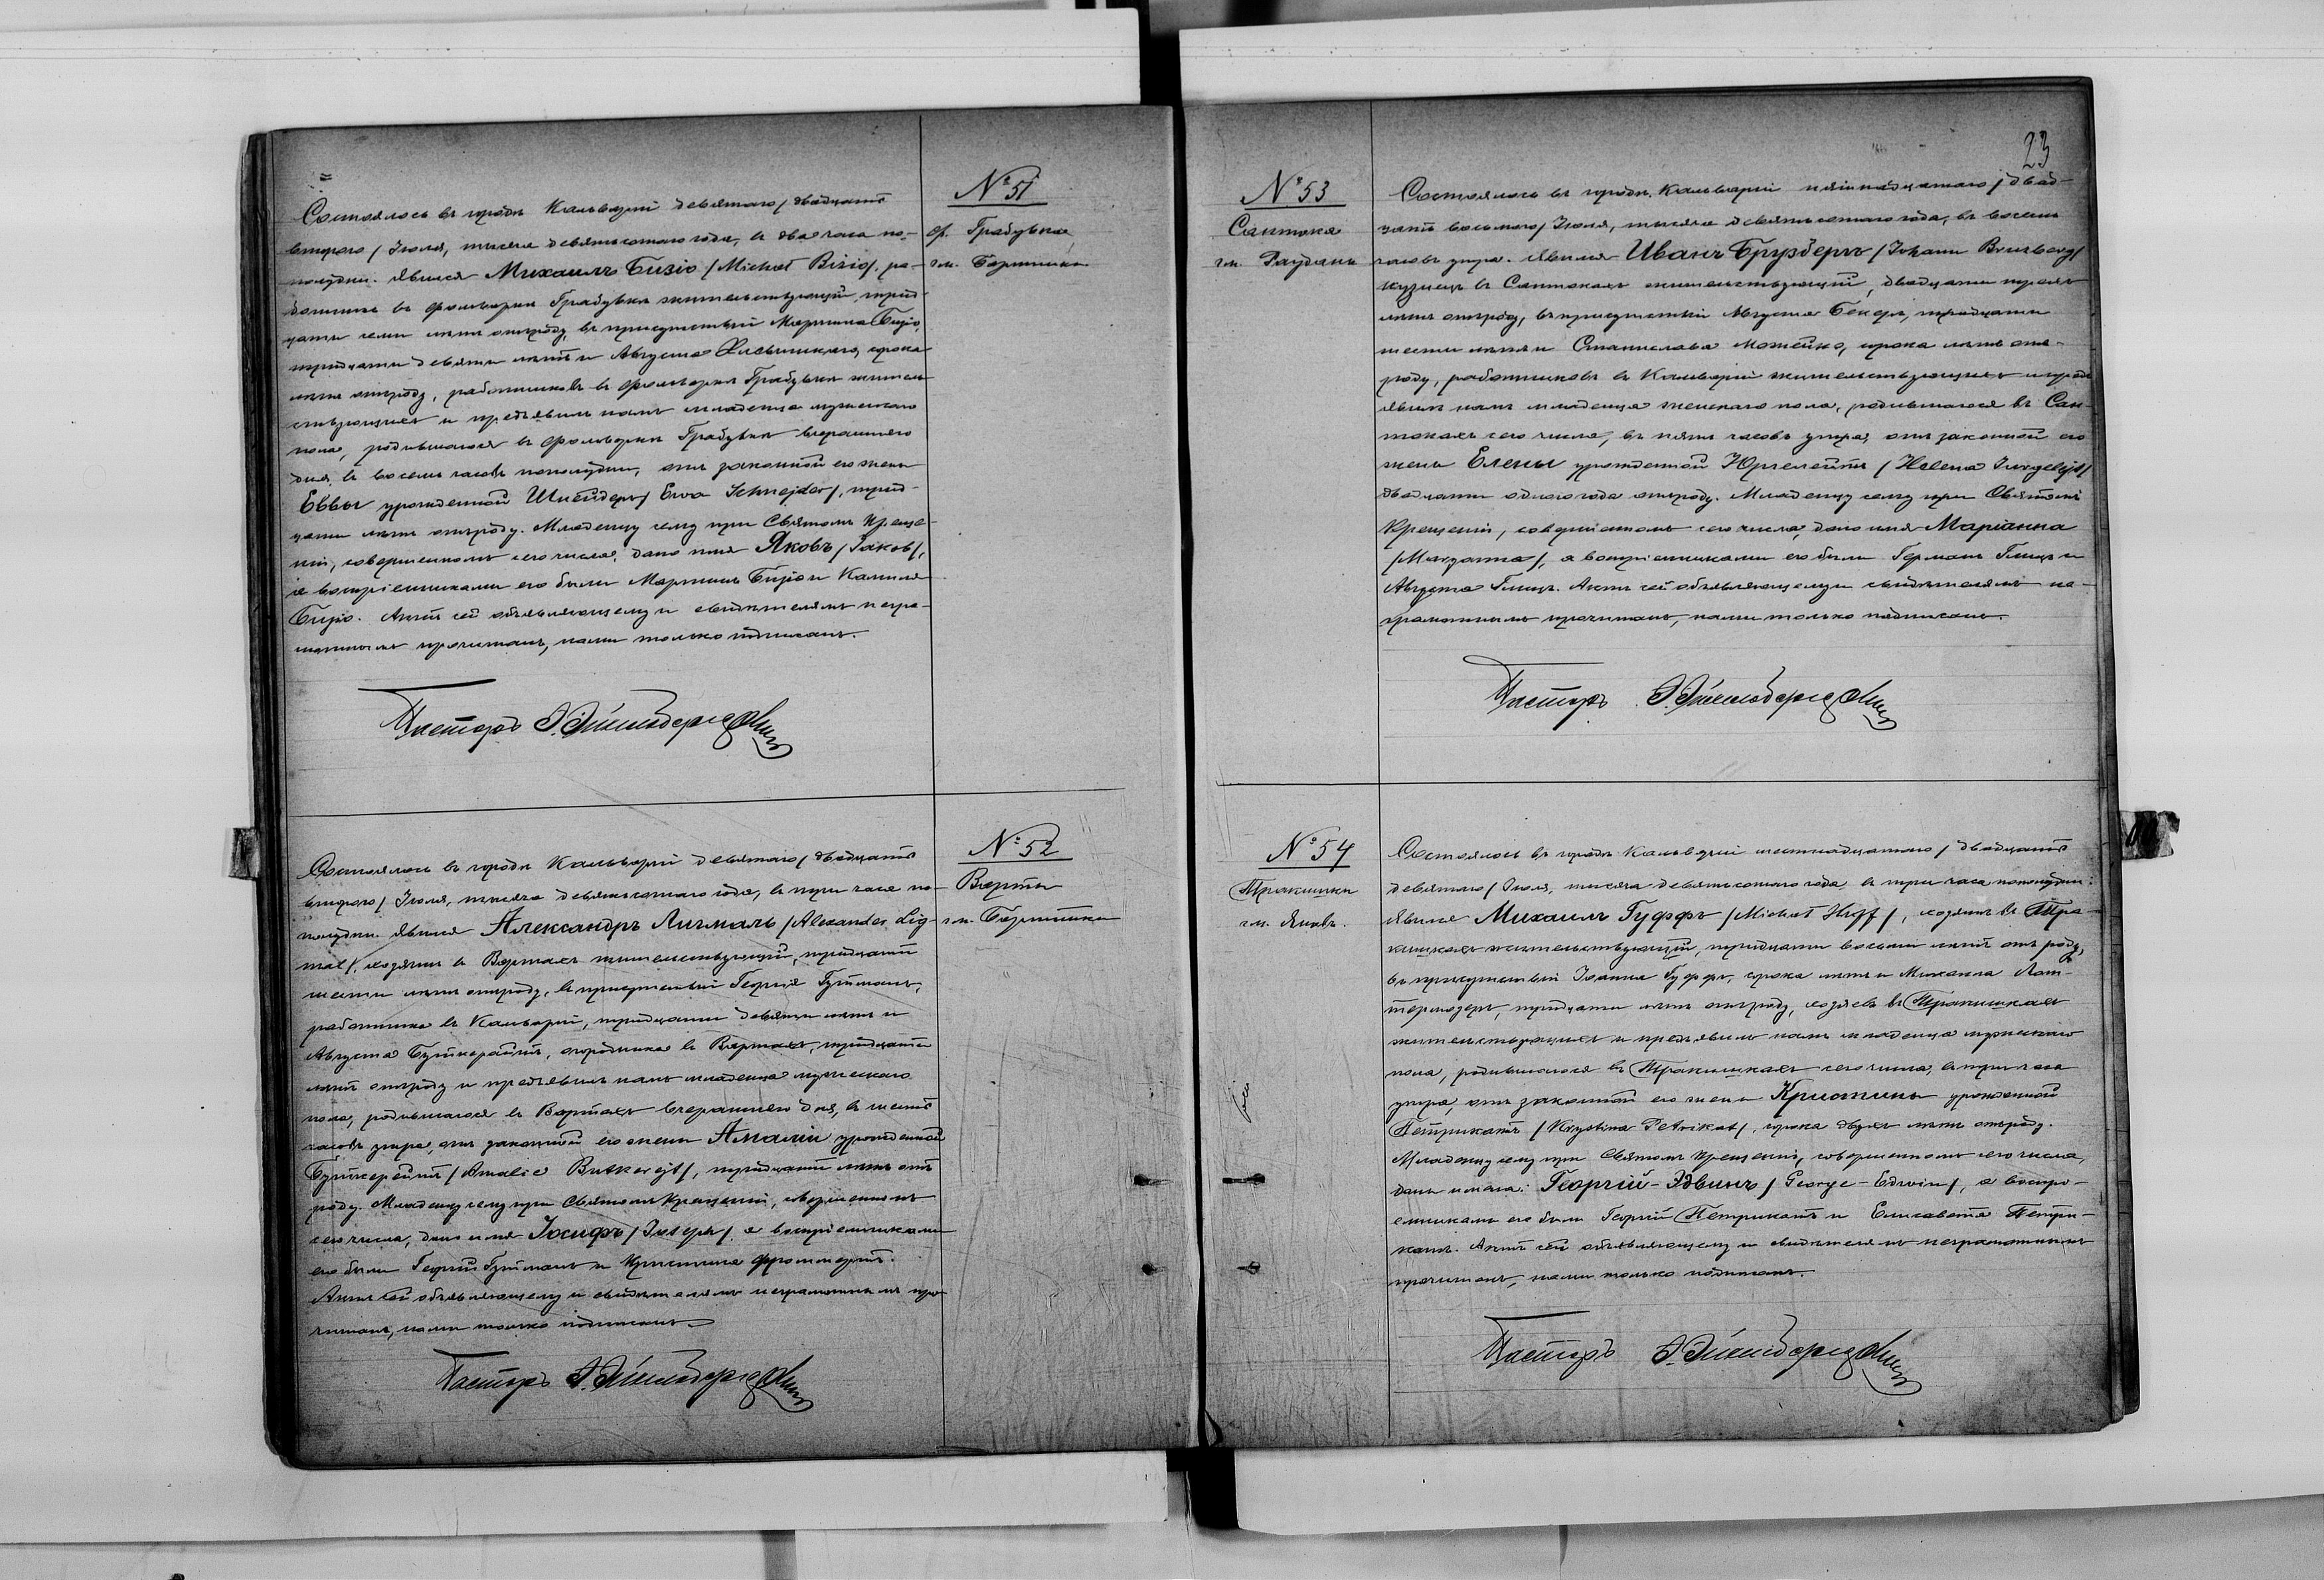 № 51
ф. Грабувка
гм. Бартники
Состоялось въ городѣ Кальваріи девятаго / двадцать
второго / Іюля, тысяча девятьсотаго года, въ два часа по-
полудни. Явился Михаилъ Бизіо / Michał Bizio /, ра-
ботникъ въ фольваркѣ Грабувкѣ жительствующій, трид-
цати семи лѣтъ отъ роду, въ присутствіи Мартина Бизіо,
тридцати девяти лѣтъ и Августа сорока
лѣтъ отъ роду, работниковъ въ фольваркѣ Грабувкѣ житель-
ствующихъ и предъявилъ намъ младенца мужескаго
пола, родившагося въ фольваркѣ Грабувкѣ вчерашняго
дня, въ восемь часовъ пополудни, отъ законной его жены
Еввы урожденной Шнейдеръ / Ewa Schnejder /, трид-
цати лѣтъ отъ роду. Младенцу сему при Святомъ Креще-
ніи, совершенномъ сего числа, дано имя Яковъ / Jakob /,
а воспріемниками его были Мартинъ Бизіо и Камиля
Бизіо. Актъ сей объявляющему и свидѣтелямъ негра-
мотнымъ прочитанъ, нами только подписанъ.
Пасторъ
№ 52
Варты
гм. Бартники
Состоялось въ городѣ Кальваріи девятаго / двадцать
второго / Іюля, тысяча девятьсотаго года, въ три часа по-
полудни. Явился Александръ Лигмалъ / Alexander Lig-
mal /, хозяинъ въ Вартахъ жительствующій, тридцати
шести лѣтъ отъ роду, въ присутствіи Георгія Гутманъ,
работника въ Кальваріи, тридцати девяти лѣтъ и
Августа Буткерайтъ, огородника въ Вартахъ, тридцати
лѣтъ отъ роду и предъявилъ намъ младенца мужескаго
пола, родившагося въ Вартахъ вчерашняго дня, въ шесть
часовъ утра, отъ законной его жены Амаліи урожденной
Буткерейтъ / Amalie Butkerejt /, тридцати лѣтъ отъ
роду. Младенцу сему при Святомъ Крещеніи, совершенномъ
сего числа, дано имя Іосифъ / Joseph /, а воспріемниками
его были Георгій Гутманъ и Кристина
Актъ сей объявляющему и свидѣтелямъ неграмотнымъ про-
читанъ, нами только подписанъ.
Пасторъ
23
№ 53
Сантока
гм. Раудань
Состоялось въ городѣ Кальваріи пятнадцатаго / двад-
цать восьмого / Іюля, тысяча девятьсотаго года, въ восемь
часовъ утра. Явился Иванъ Брузбергъ / Johann Brusberg /
кузнецъ въ Сантокахъ жительствующій, двадцати трехъ
лѣтъ отъ роду, въ присутствіи Августа Бекеръ, тридцати
шести лѣтъ и Станислава Можейко, сорока лѣтъ отъ
роду, работниковъ въ Кальваріи жительствующихъ и предъ-
явилъ намъ младенца женскаго пола, родившагося въ Сан-
токахъ сего числа, въ пять часовъ утра, отъ законной его
жены Елены урожденной Юргелейтъ / Helena Jurgelejt /
двадцати одного года отъ роду. Младенцу сему при Святомъ
Крещеніи, совершенномъ сего числа, дано имя Маріанна
/ Maryanna /, а воспріемниками его были Германъ Глицъ и
Августа Глицъ. Актъ сей объявляющему и свидѣтелямъ не-
грамотнымъ прочитанъ, нами только подписанъ.
Пасторъ
№ 54
Тракишки
гм. Яновъ.
Состоялось въ городѣ Кальваріи шестнадцатаго / двадцать
девятаго / Іюля, тысяча девятьсотаго года, въ три часа пополудни.
Явился Михаилъ Гуффъ / Michał Huff /, хозяинъ въ Тра-
кишкахъ жительствующій, тридцати восьми лѣтъ отъ роду,
въ присутствіи Іоанна Гуффъ, сорока лѣтъ и Михаила Лат-
термозеръ, тридцати лѣтъ отъ роду, хозяевъ въ Тракишкахъ
жительствующихъ и предъявилъ намъ младенца мужескаго
пола, родившагося въ Тракишкахъ сего числа, въ три часа
утра, отъ законной его жены Кристины урожденной
Петрикатъ / Krystina Petrikat /, сорока двухъ лѣтъ отъ роду.
Младенцу сему при Святомъ Крещеніи, совершенномъ сего числа,
даны имена: Георгій-Эдвинъ / George-Edwin /, а воспрі-
емниками его были Георгій Петрикатъ и Елисавета Петри-
катъ. Актъ сей объявляющему и свидѣтелямъ неграмотнымъ
прочитанъ, нами только подписанъ.
Пасторъ